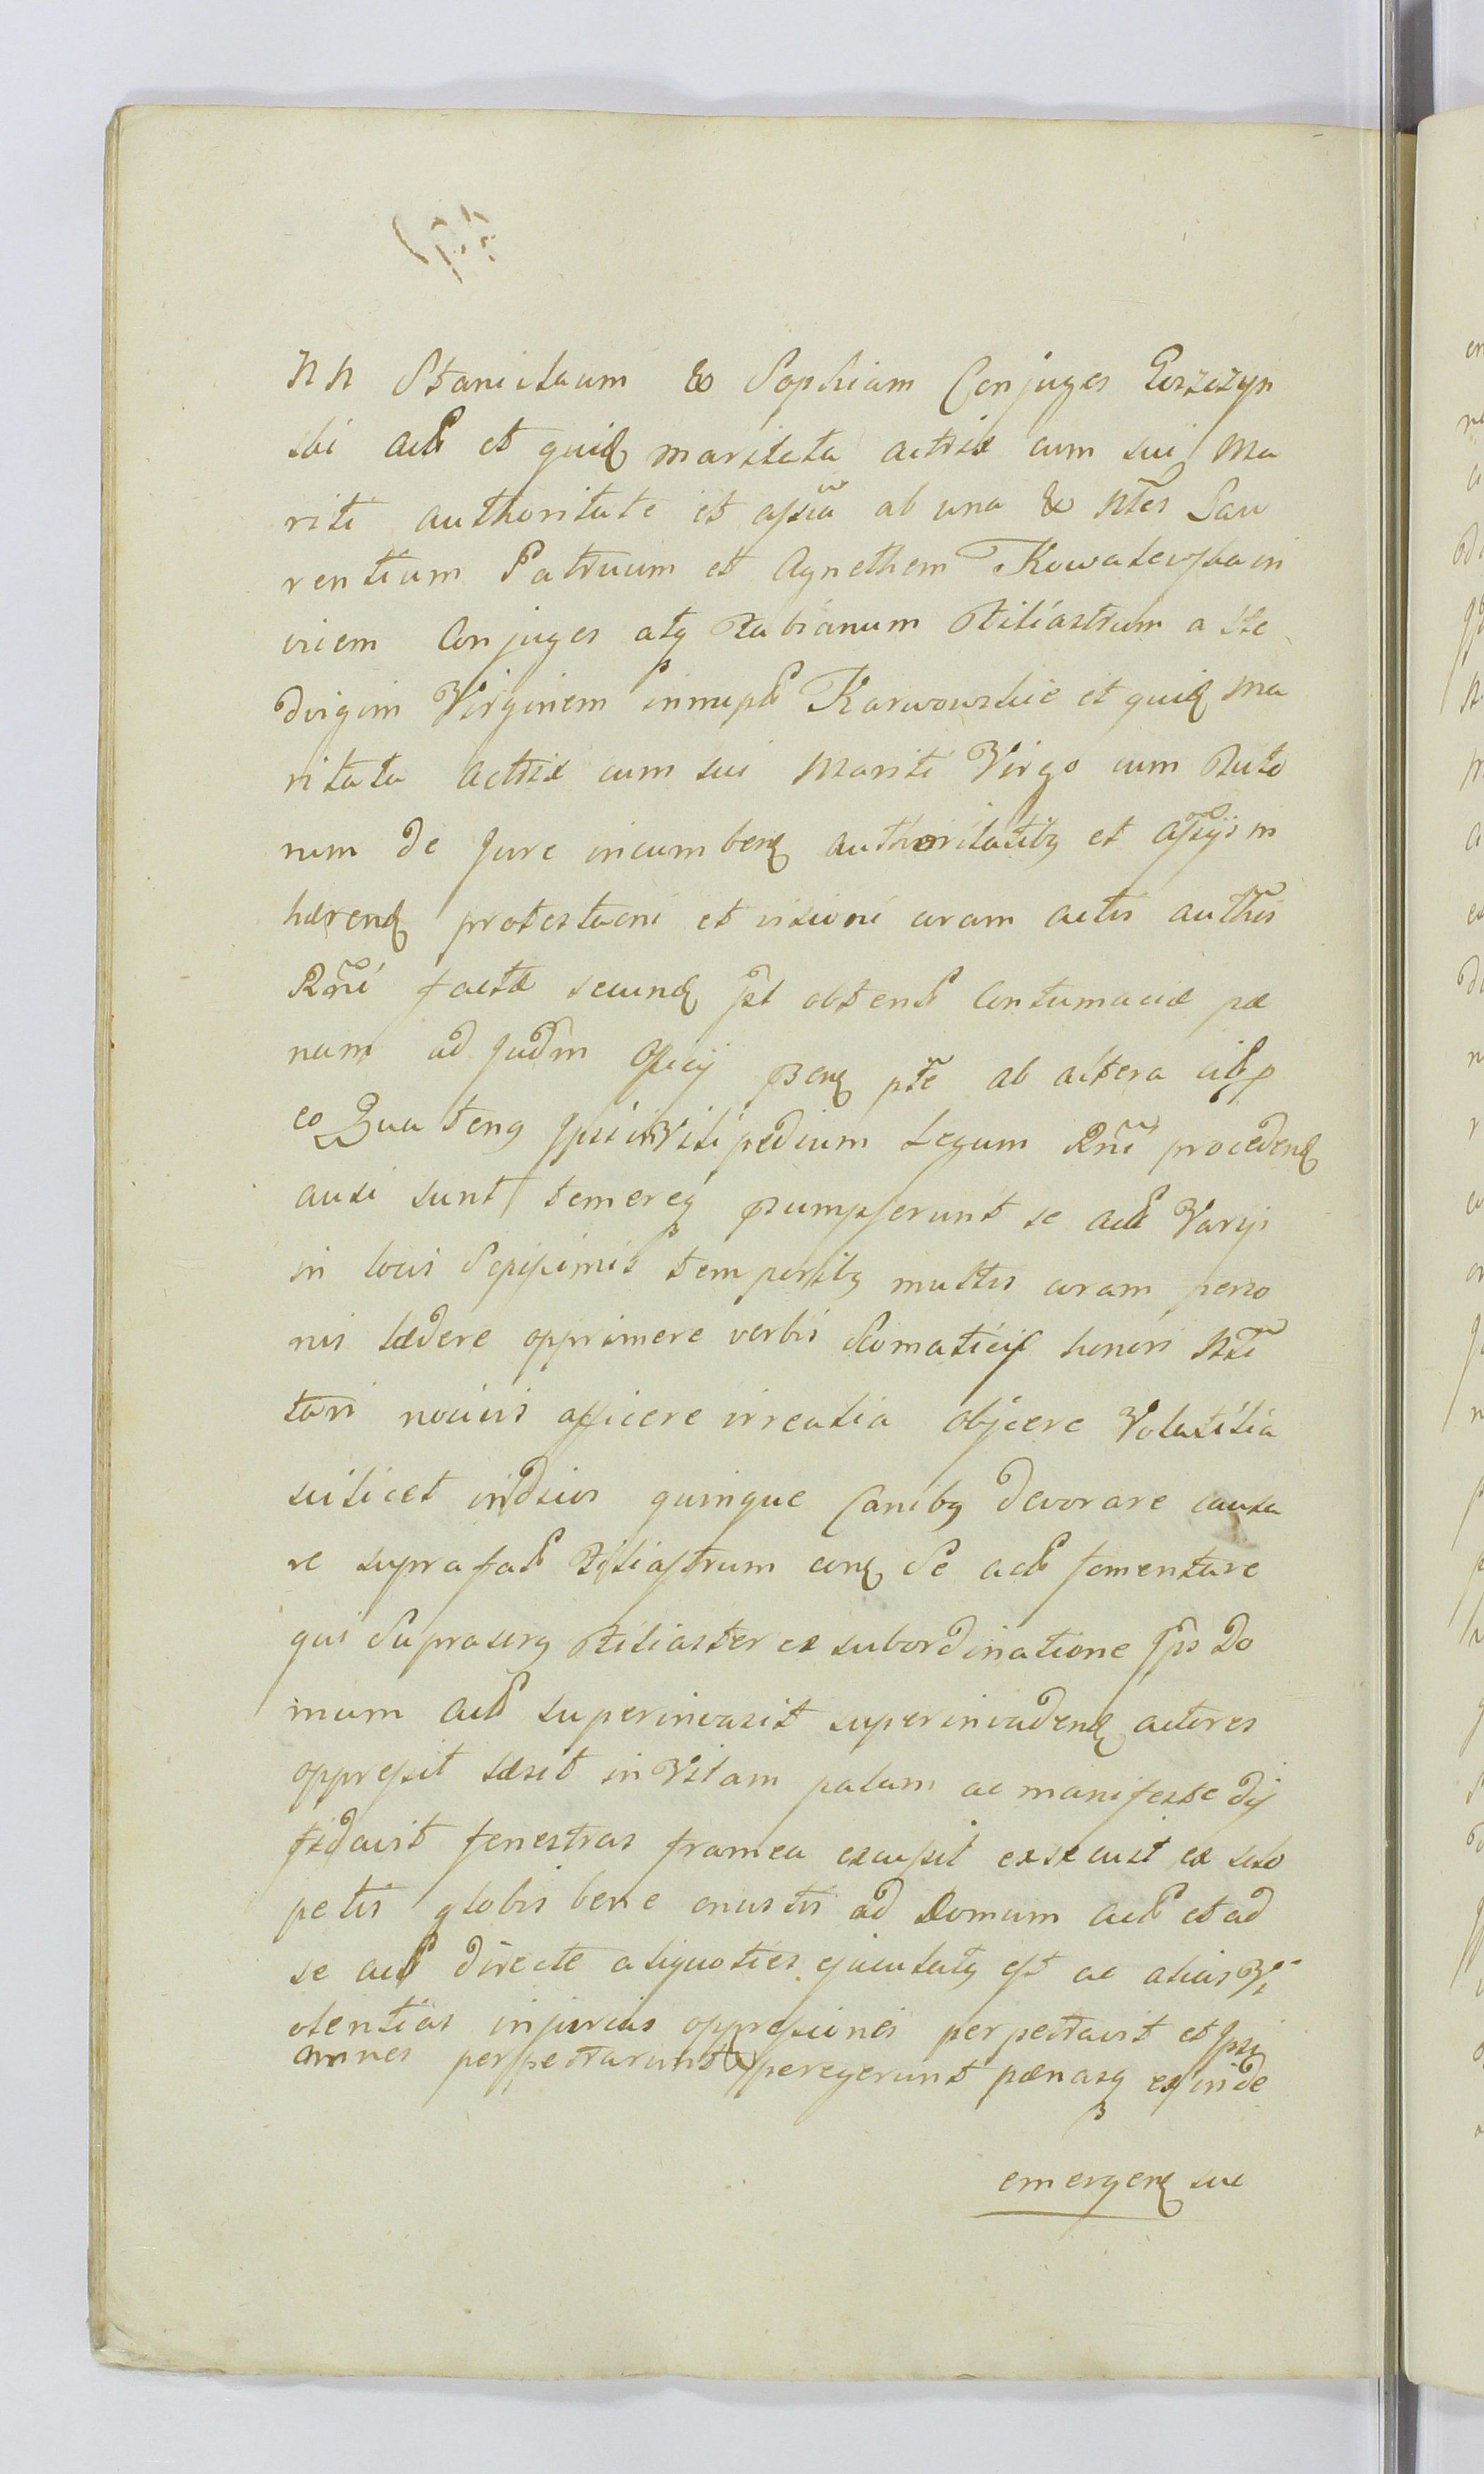 NN Stanislaum & Sophiam Conjuges Gorszczyn
ski act et quid maritata actrix cum sui Ma
riti authoritate et assia ab una & Ntes Lau
rentium Patruum et Agnethem Kowalewska in
viem Conjuges atq Fabianum Filiastrum a He
dvigim Virginem innupt Karwowskie et quid ma
ritata actrix cum sui Mariti Virgo cum Tuto
rum de Jure incumben authoritatibq et assijs in
hærend protestaoni et visioni coram actis authis
Rñi factæ secund pst obtent Contumaciæ pæ
nam ad Judm Officij Benq pte ab altera citp
eo Quatenq Ipsi in Vilipedium Legum Rñi procedend
ausi sunt temereq sumpserunt se act Varijs
in locis Sepissimis temporibq multis coram perso
nis lædere opprimere verbis Stomaticis honori Nti
tari nocivis afficere irrealia objicere Volatilia
scilicet indicos quinque Canibq devorare causa
re suprafat Filiastrum conq Se act fomentare
qui Suprascrq Filiaster ex subordinatione Ips Do
mum act superinvasit superinvadend actores
oppressit læsit in Vitam palam ac manifeste dif
fidavit fenestras framea excussit exsecuit ex sclo
petis globis bene onustis ad Domum act et ad
se act directe aliquoties ejaculatq est ac alias Vi
olentias injurias oppressiones perpetravit et Ipsi
omnes perpetrarunt & peregerunt pænasq exinde
emergend suc